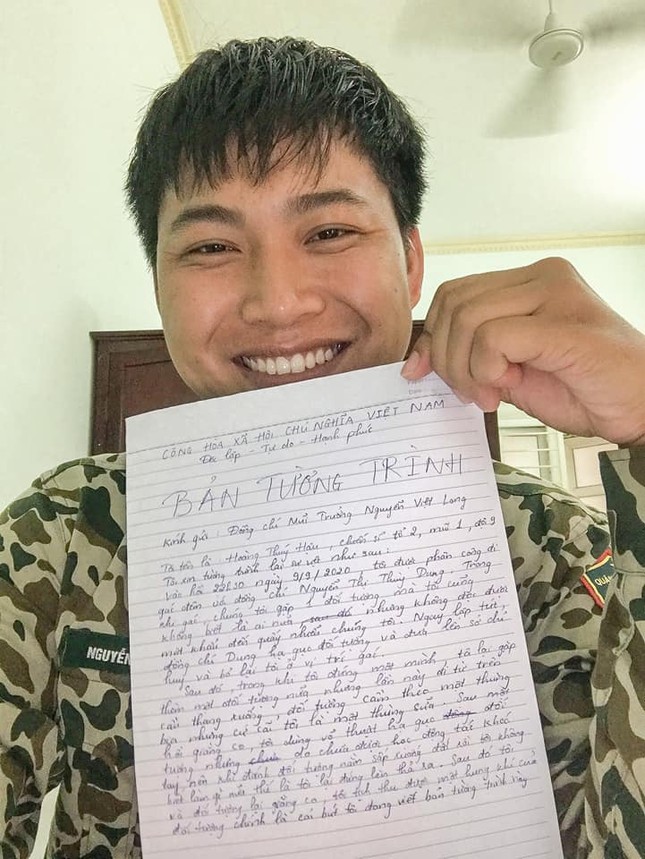 CỘNG HOÀ XÃ HỘI CHỦ NGHĨA VIỆT NAM
Độc lập - Tự do - Hạnh phúc
BẢN TƯỜNG TRÌNH
Kính gửi: Đồng chí Mũi Trưởng Nguyễn Việt Long
Tôi tên là: Hoàng Thuý Hậu, chiến sĩ tổ 2, mũi 1, đội 9
Tôi xin tường trình lại sự việc như sau:
Vào hồi 22h30 ngày 9/9/2020, tôi được phân công đi
gác đêm với đồng chí Nguyễn Thị Thuỳ Dung. Trong
khi gác, chúng tôi gặp 1 đối tượng mà tôi cũng
không biết là ai nữa nhưng không đội dưa
một khẩu đến quấy nhiễu chúng tôi. Ngay lập tức,
đồng chí Dung hạ gục đối tượng và đưa lên sở chỉ
huy và bỏ lại tôi ở vị trí gác
Sau đó, trong khi tôi đứng một mình, tôi lại gặp
thêm một đối tượng nữa nhưng lần này đi từ trên
cầu thang xuống, đối tượng cầm theo một thùng
bia nhưng cứ cãi tôi là một thùng sữa. Sau một
hồi giằng co, tôi dùng võ thuật hạ gục đối
tượng nhưng chưa được học động tác khoá
tay nên khi đánh đối tượng nằm sấp xuống đất rồi tôi không
biết làm gì nữa thế là tôi lại đứng lên thả ra. Sau đó tôi
và đối tượng lại giằng co, tôi tịch thu được một hung khí của
đối tượng chính là cái bút tôi đang viết bản tường trình này
NGUYỄN
QUÂ